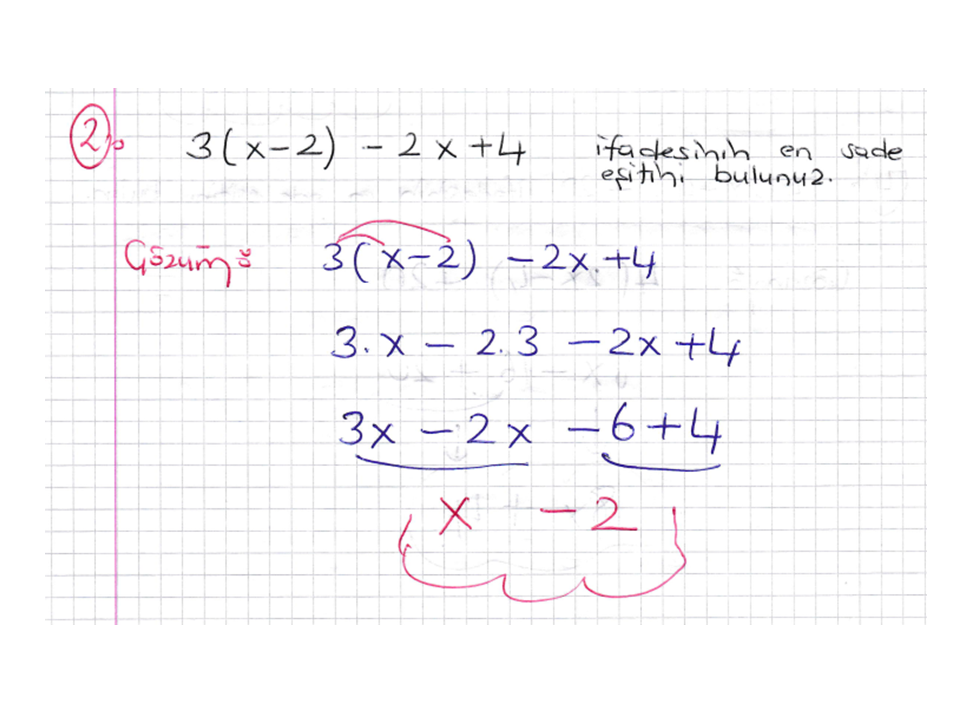 2. 3(x-2) - 2x+4 ifadesinin en sade
eşitini bulunuz.
Çözüm: 3(x-2) -2x+4
3.x - 2.3 -2x+4
3x -2x -6+4
x -2